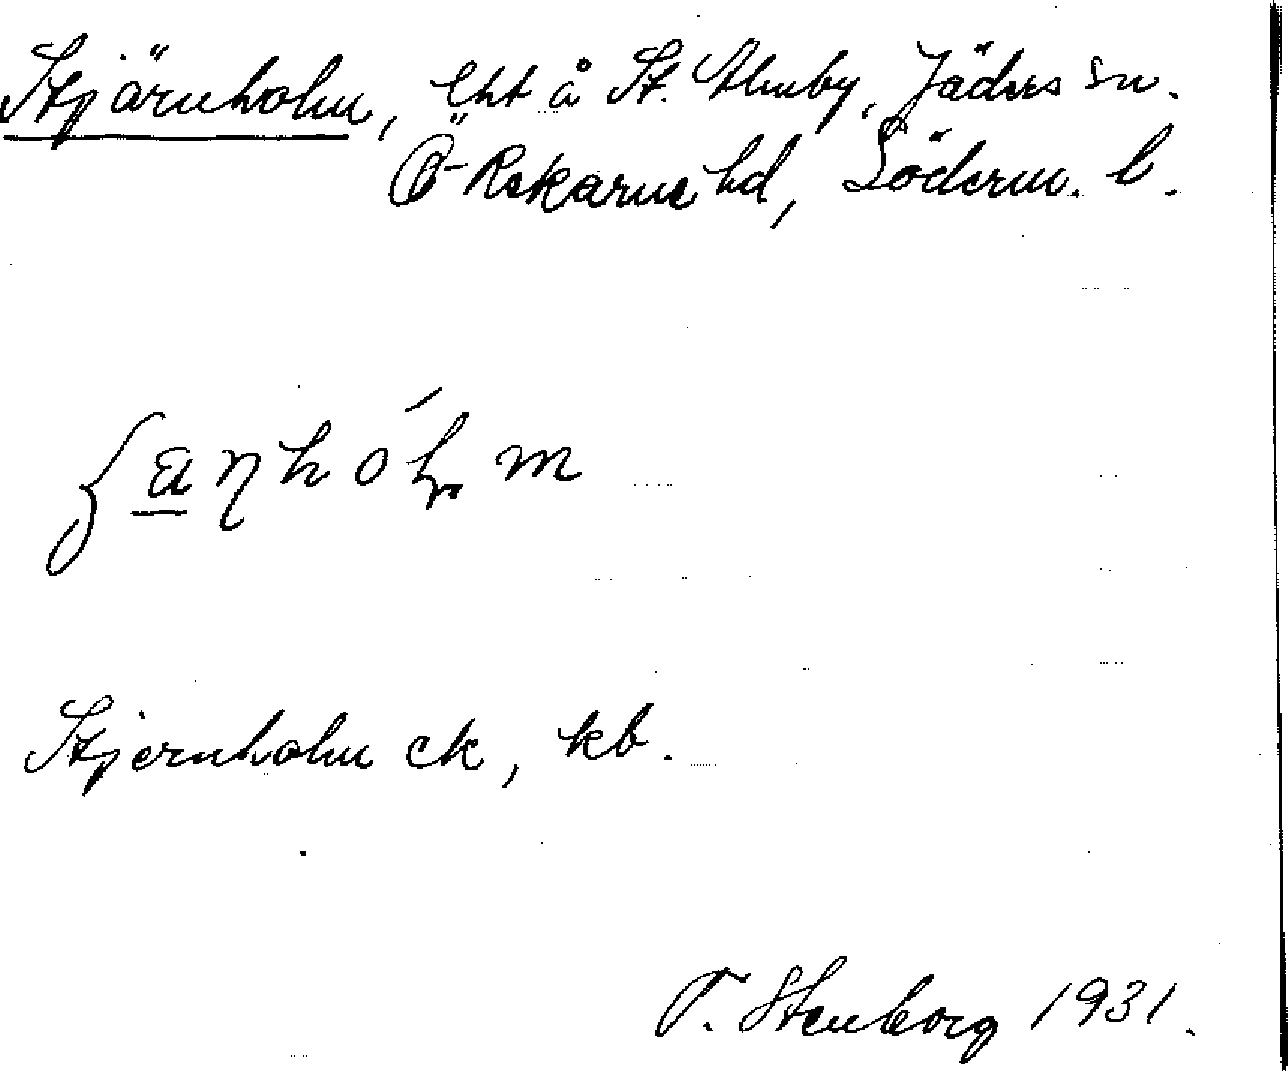 Stjärnholm, lht å St. Almby, Jäders sn.
Ö-Rekarne hd, Söderm. l.
ʃa̲ŋhólm
Stjernholm ek, kb.
T. Stenborg 1931.